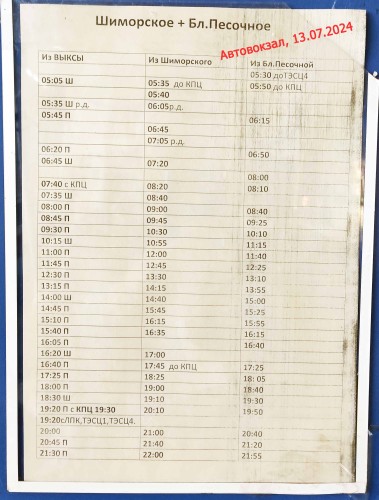 Шиморское + Бл.Песочное
Автовокзал, 13.07.2024
Из ВЫКСЫ Из Шиморского Из Бл.Песочной
05:30 доТЭСЦ4
05:05 Ш 05:35 до КПЦ 05:50 до КПЦ
05:40
05:35 Ш р.д. 06:05р.д.
05:45 П 06:15
06:45
07:05 р.д.
06:20 П 06:50
06:45 Ш 07:20
08:00
07:40 с КПЦ 08:20 08:10
07:35 Ш 08:40
08:00 П 09:00 08:40
08:45 П 09:45 09:25
09:30 П 10:30 10:10
10:15 Ш 10:55 11:15
11:00 П 12:00 11:40
11:45 П 12:45 12:25
12:30 П 13:30 13:10
13:15 П 14:15 13:55
14:00 Ш 14:40 15:00
14:45 П 15:45 15:25
15:10 П 16:15 15:55
15:40 П 16:35 16:15
16:05 П 16:40
16:20 Ш 17:00
16:40 П 17:45 до КПЦ 17:25
17:25 П 18:25 18: 05
18:00 П 19:00 18:40
18:30 Ш 19:10 19:30
19:20 П с КПЦ 19:30 20:10 19:50
19:20сЛПК,ТЭСЦ1,ТЭСЦ4.
20:00 21:00 20:40
20:45 П 21:40 21:20
21:30 П 22:00 21:55